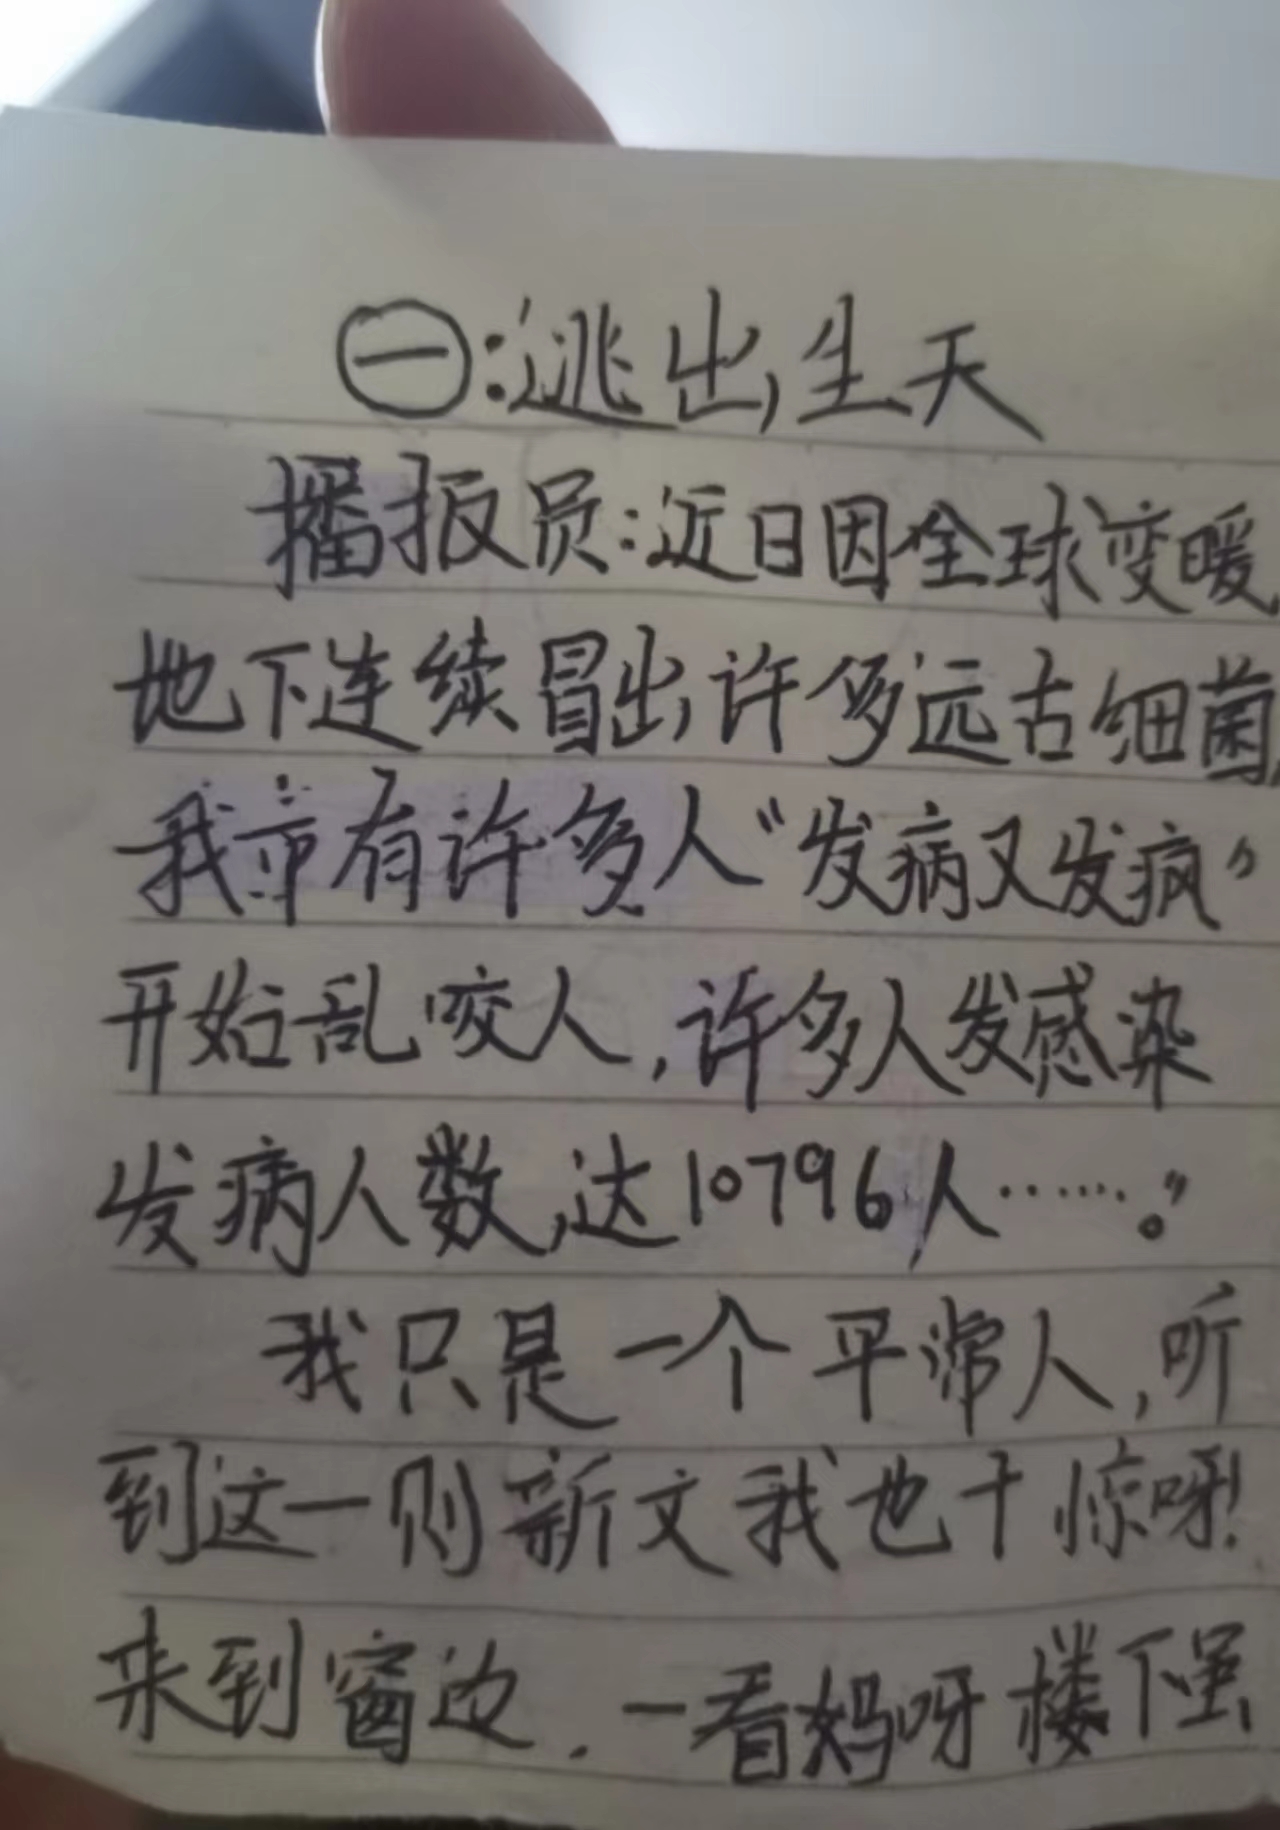 ㊀:逃出生天
播报员:近日因全球变暖,
地下连续冒出许多远古细菌,
我市有许多人“发病又发疯”
开始乱咬人,许多人发感染
发病人数达10796人……。”
我只是一个平常人,听
到这一则新文我也十惊呀!
来到窗边.一看妈呀楼下